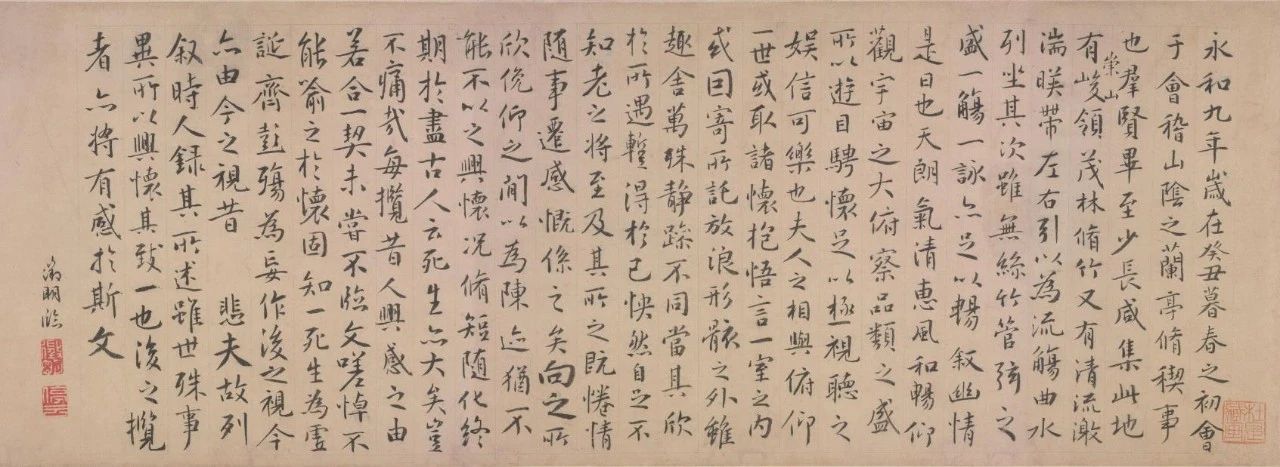 永和九年歲在癸丑暮春之初會
于會稽山陰之蘭亭脩稧事
也羣賢畢至少長咸集此地
有崇山峻領茂林脩竹又有清流激
湍暎帶左右引以為流觴曲水
列坐其次雖無絲竹管弦之
盛一觴一詠亦足以暢叙幽情
是日也天朗氣清惠風和暢仰
觀宇宙之大俯察品類之盛
所以遊目騁懷足以極視聽之
娛信可樂也夫人之相與俯仰
一世或取諸懷抱悟言一室之內
或因寄所託放浪形骸之外雖
趣舍萬殊静躁不同當其欣
於所遇蹔得於己怏然自足不
知老之將至及其所之既惓情
随事遷感慨係之矣向之所
欣俛仰之閒以為陳迹猶不
能不以之興懷況脩短随化終
期於盡古人云死生亦大矣豈
不痛哉每攬昔人興感之由
若合一契未嘗不臨文嗟悼不
能喻之於懷固知一死生為虛
誕齊彭殤為妄作後之視今
亦由今之視昔 悲夫故列
叙時人録其所述雖世殊事
異所以興懷其致一也後之攬
者亦將有感於斯文
徵明臨